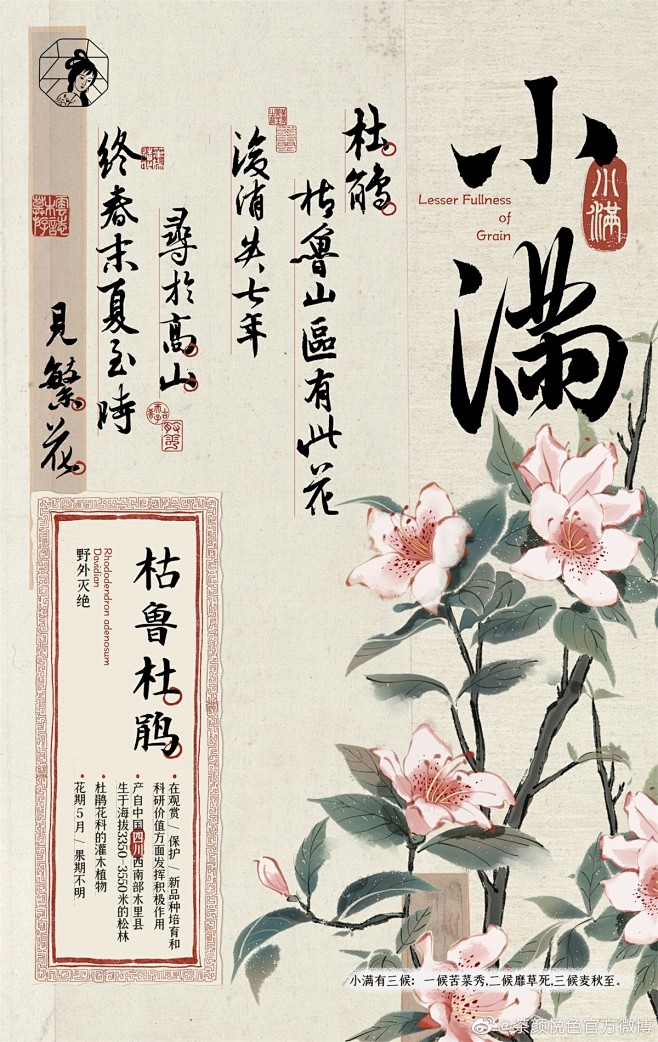 小满
Lesser Fullness
of
Grain
小滿
杜鵑
枯魯山區有此花
後消失七年
尋於高山
終春末夏至時
見繁花
枯鲁杜鹃
Rhododendron adenosum
Davidian
野外灭绝
•在观赏/保护/新品种培育和
科研价值方面发挥积极作用
•产自中国四川西南部木里县
生于海拔3350-3550米的松林
•杜鹃花科的灌木植物
•花期5月/果期不明
小满有三候：一候苦菜秀,二候靡草死,三候麦秋至。
@茶颜悦色官方微博